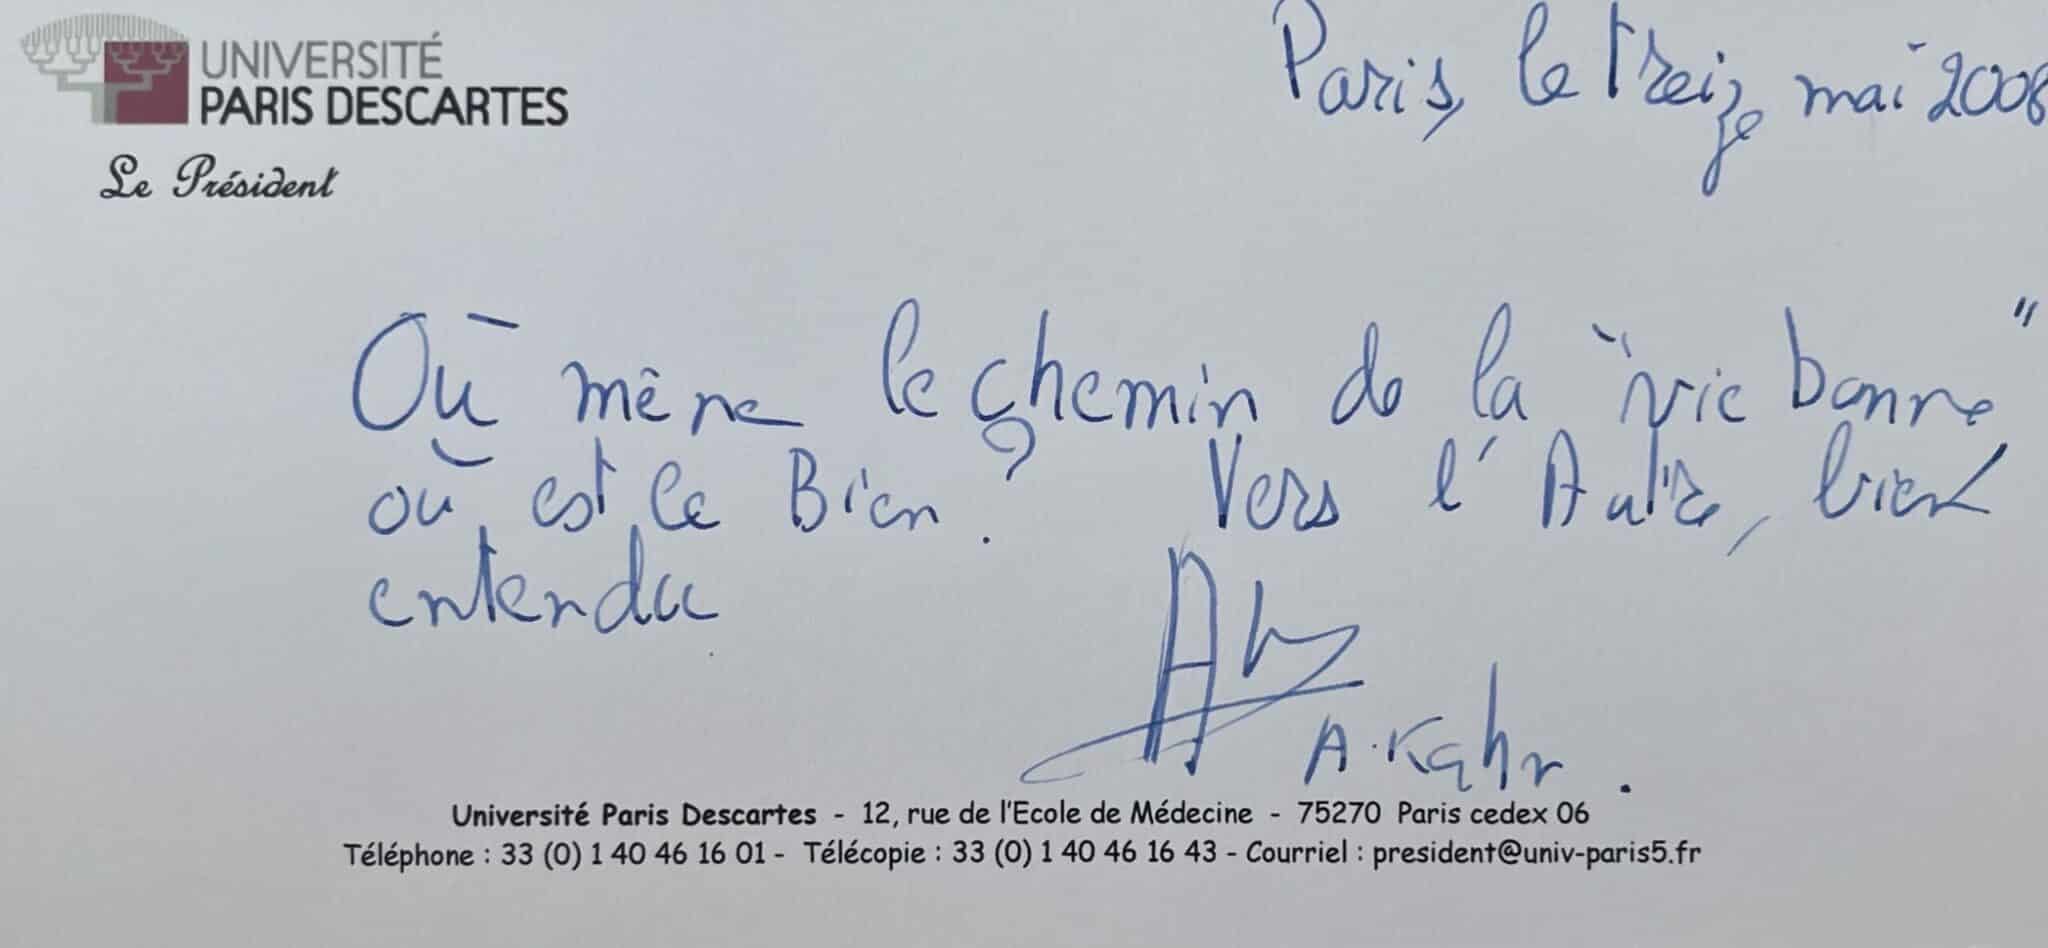 UNIVERSITÉ
PARIS DESCARTES
Le Président
Paris, le treize mai 2008
Où mène le chemin de la "vie bonne"
où est le Bien ? Vers l'Autre, bien
entendu
A. Kahn.
Université Paris Descartes - 12, rue de l'Ecole de Médecine - 75270 Paris cedex 06
Téléphone : 33 (0) 1 40 46 16 01 - Télécopie : 33 (0) 1 40 46 16 43 - Courriel : president@univ-paris5.fr